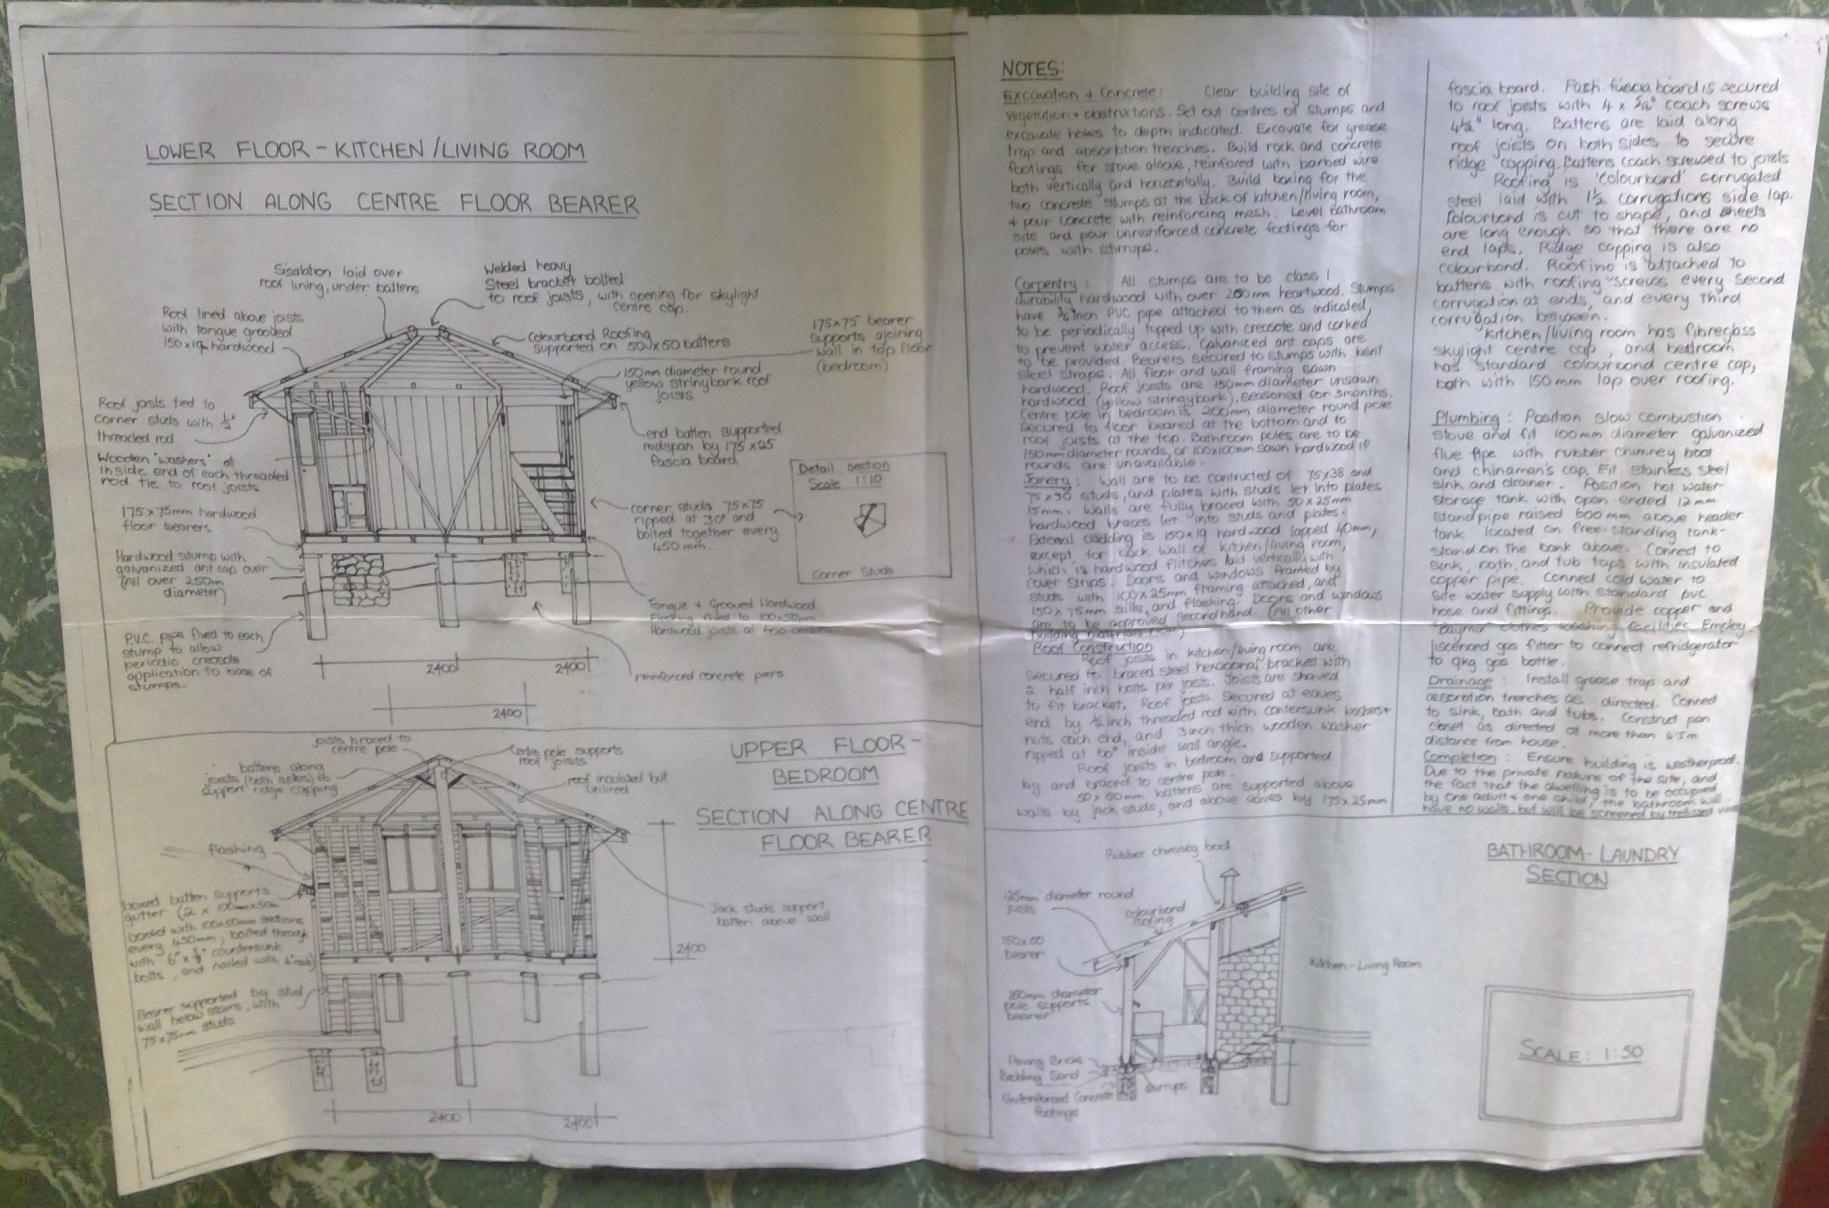 LOWER FLOOR - KITCHEN/LIVING ROOM
SECTION ALONG CENTRE FLOOR BEARER
Sisalation laid over
roof lining, under battens
Welded heavy
Steel bracket bolted
to roof joists, with opening for skylight
centre cap.
Roof lined above joists
with tongue grooved
150x19 hardwood
Colourbond Roofing
supported on 50x50 battens
175x75 bearer
supports ajoining
wall in top floor
(bedroom)
150mm diameter round
yellow stringybark roof
joists
Roof josts tied to
corner studs with ½"
threaded rod
end batten supported
midspan by 175x25
fascia board
Wooden 'washers' at
inside end of each threaded
rod tie to roof joists
Detail section
Scale 1:10
Corner Studs
175x75mm hardwood
floor bearers
corner studs 75x75
ripped at 30° and
bolted together every
450 mm.
Hardwood stump with
galvanized ant cap over
(all over 250mm
diameter)
Tongue + Grooved Hardwood
Flooring fixed to 100x50mm
Hardwood joists at 450 centres
P.V.C. pipe fixed to each
stump to allow
periodic creosote
application to base of
stumps.
2400
2400
2400
reinforced concrete piers
UPPER FLOOR -
BEDROOM
SECTION ALONG CENTRE
FLOOR BEARER
joists braced to
centre pole
Centre pole supports
roof joists
battens along
joists (both sides) to
support ridge capping
roof insulated but
unlined
flashing
boxed batten supports
gutter (2 x 100mm x 50mm
boxed with 100x50mm sections
every 450mm, bolted through
with 6" x countersunk
bolts, and nailed with
Jack studs support
batten above wall
2400
Bearer supported by stud
wall below stairs, with
75x75mm studs
2400
2400
NOTES:
Excavation + Concrete: Clear building site of
vegetation + obstructions. Set out centres of stumps and
excavate holes to depth indicated. Excavate for grease
trap and absorbtion trenches. Build rock and concrete
footings for stove alcove, reinforced with barbed wire
both vertically and horizontally. Build boxing for the
two concrete stumps at the back of kitchen/living room,
+ pour concrete with reinforcing mesh. Level Bathroom
site and pour unreinforced concrete footings for
poles with stirrups.
Carpentry: All stumps are to be class 1
durability hardwood with over 250mm heartwood. Stumps
have ¾ inch PVC pipe attached to them as indicated,
to be periodically topped up with creosote and corked
to prevent water access. Galvanized ant caps are
to be provided. Bearers secured to stumps with bent
steel straps. All floor and wall framing sawn
hardwood. Roof joists are 150mm diameter unsawn
hardwood (yellow stringybark), seasoned for 3 months.
Centre pole in bedroom is 200mm diameter round pole
secured to floor beared at the bottom and to
roof joists at the top. Bathroom poles are to be
150mm diameter rounds, or 100x100mm sawn hardwood if
rounds are unavailable.
Joinery: Wall are to be contructed of 75x38 and
75x50 studs, and plates with studs let into plates
15mm. Walls are fully braced with 50x25mm
hardwood braces let into studs and plates.
External cladding is 150x19 hardwood lapped 40mm,
except for back wall of kitchen/living room,
which is hardwood flitches laid vertically with
cover strips. Doors and windows framed by
studs with 100x25mm framing attached, and
150x75mm sills, and flashing. Doors and windows
are to be approved secondhand. (All other
building materials new)
Roof Construction
Roof joists in kitchen/living room are
secured to braced steel hexagonal bracket with
2 half inch bolts per joist. Joists are shaved
to fit bracket. Roof joists secured at eaves
end by ½ inch threaded rod with contersunk washers +
nuts each end, and 3inch thick wooden washer
ripped at 60° inside wall angle.
Roof joists in bedroom are supported
by and braced to centre pole.
50x50mm battens are supported above
walls by jack studs, and above eaves by 175x25mm
fascia board. Each fascia board is secured
to roof joists with 4 x coach screws
4½" long. Battens are laid along
roof joists on both sides to secure
ridge capping. Battens coach screwed to joists
Roofing is 'colourbond' corrugated
steel laid with 1½ corrugations side lap.
Colourbond is cut to shape, and sheets
are long enough so that there are no
end laps. Ridge capping is also
colourbond. Roofing is attached to
battens with roofing screws every second
corrugation at ends, and every third
corrugation between.
Kitchen/living room has fibreglass
skylight centre cap, and bedroom
has standard colourbond centre cap,
both with 150mm lap over roofing.
Plumbing: Position slow combustion
stove and fit 100mm diameter galvanized
flue pipe with rubber chimney boot
and chinaman's cap. Fit stainless steel
sink and drainer. Position hot water
storage tank with open ended 12mm
standpipe raised 600mm above header
tank located on free-standing tank-
stand on the bank above. Connect to
sink, bath, and tub taps with insulated
copper pipe. Conned cold water to
site water supply with standard pvc
hose and fittings. Provide copper and
clothes washing facilities. Employ
liscenced gas fitter to connect refridgerator
to 9kg gas bottle.
Drainage: Install grease trap and
absorption trenches as directed. Conned
to sink, bath and tubs. Construct pan
closet as directed at more than
distance from house.
Completion: Ensure building is weatherproof.
Due to the private nature of the site, and
the fact that the dwelling is to be occupied
by one adult + one child, the bathroom will
have no walls, but will be screened by trellised vines
BATHROOM-LAUNDRY
SECTION
Rubber chimney boot
125mm diameter round
joists
colourbond
roofing
150x50
bearer
Kitchen-Living Room
150mm diameter
pole supports
bearer
Paving Bricks
Bedding Sand
stirrups
Unreinforced Concrete
Footings
SCALE: 1:50